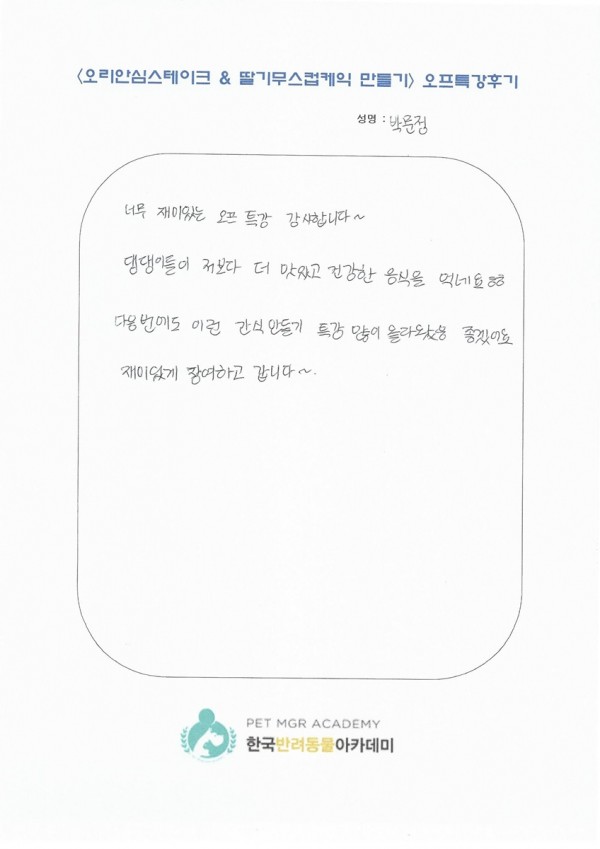 <오리안심스테이크 & 딸기무스컵케익 만들기> 오프특강후기
성명 : 박문정
너무 재미있는 오프 특강 감사합니다~
댕댕이들이 저보다 더 맛있고 건강한 음식을 먹네요ㅎㅎ
다음번에도 이런 간식만들기 특강 많이 올라왔음 좋겠어요
재미있게 참여하고 갑니다~.
PET MGR ACADEMY
한국반려동물아카데미